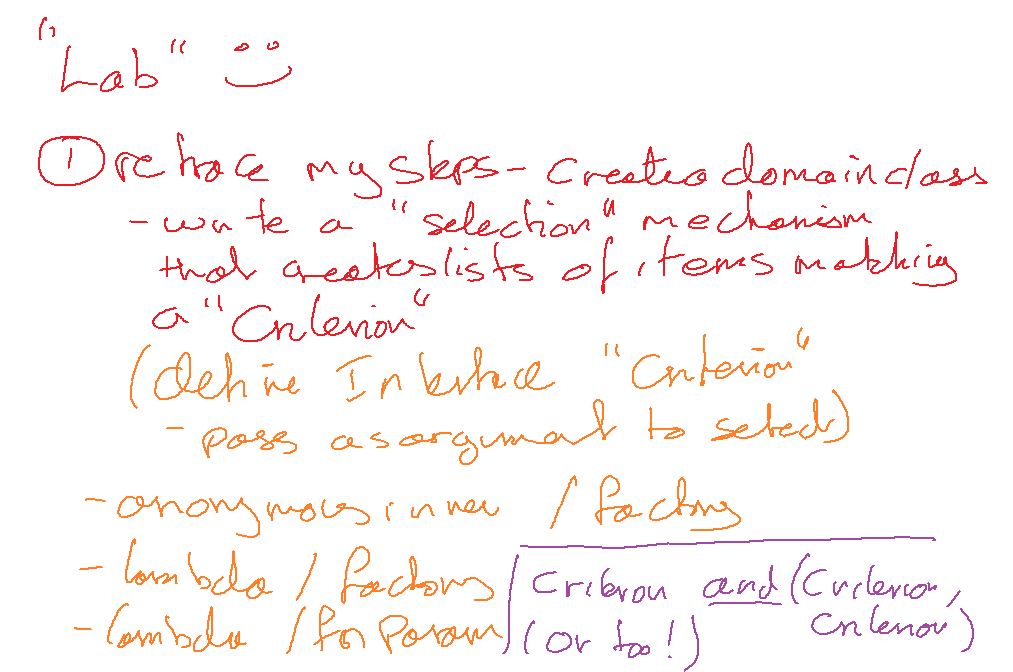 "Lab"
① retrace my steps - create a domain class
- write a "selection" mechanism
that creates lists of items matching
a "Criterion"
(define Interface "Criterion"
- pass as argument to select)
- anonymous inner / factory
- lambda / factory
- lambda / fn Param
Criterion and (Criterion,
Criterion)
(or too!)